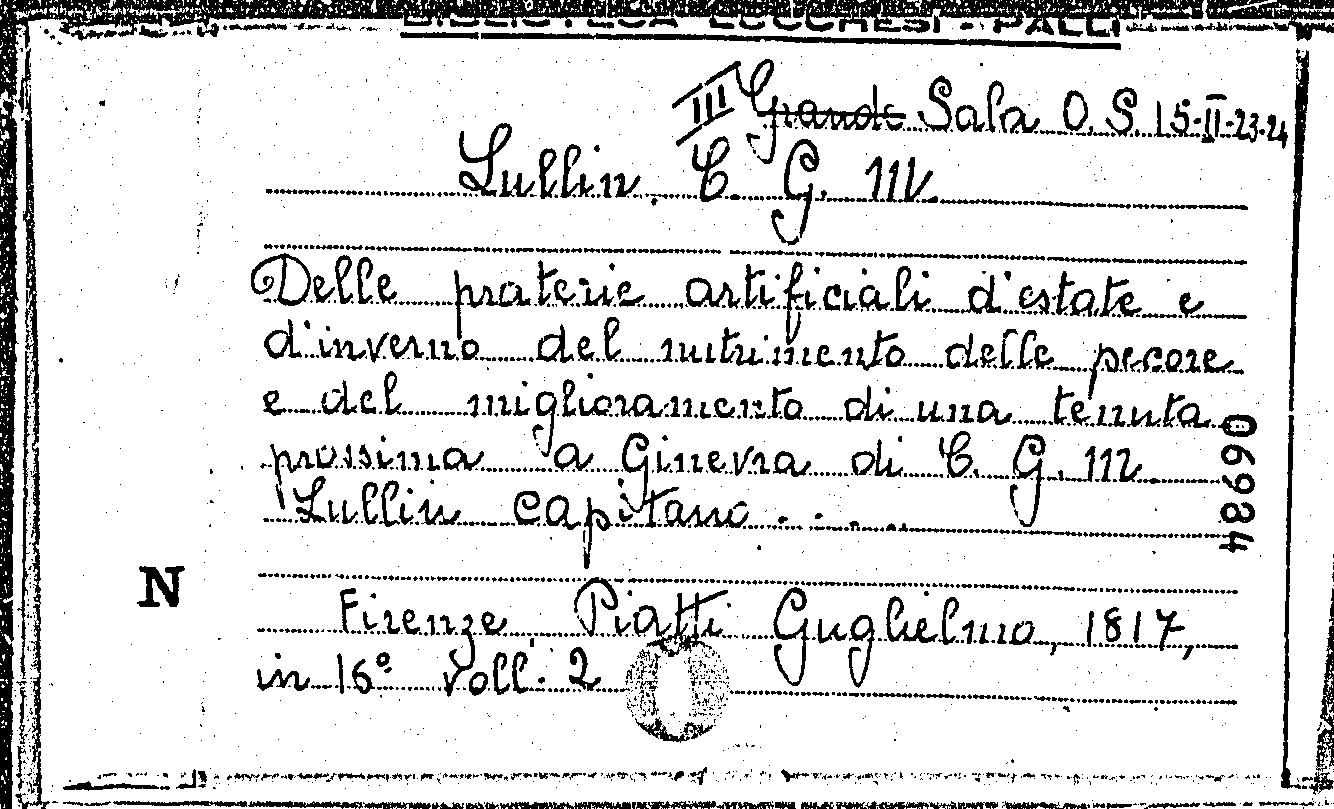 BIBLIOTECA LUCCHESI-PALLI
III Grande Sala O. S 15-II-23-24
Lullin. C. G. M.
Delle praterie artificiali d'estate e
d'inverno del nutrimento delle pecore
e del miglioramento di una tenuta
prossima a Ginevra di C. G. M.
Lullin capitano . . . . .
06984
N
Firenze, Piatti Guglielmo, 1817,
in 16° voll. 2